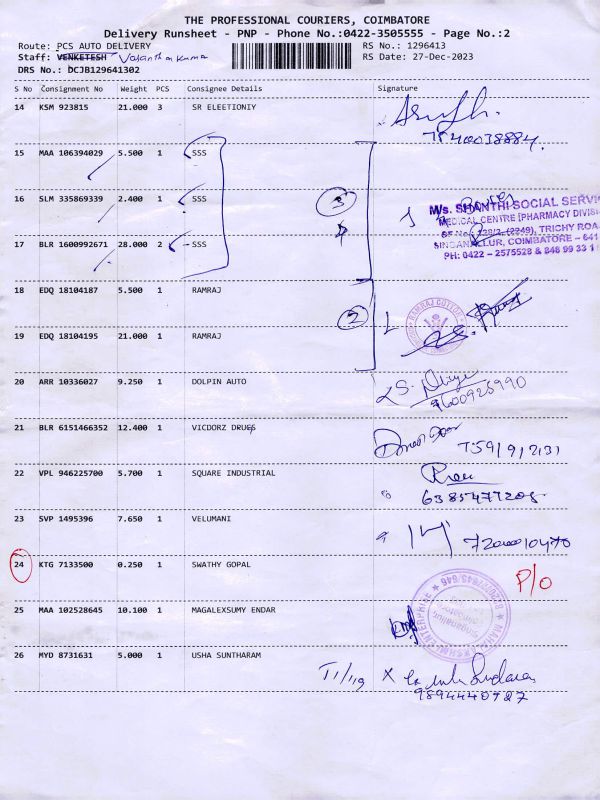 THE PROFESSIONAL COURIERS, COIMBATORE
Delivery Runsheet - PNP - Phone No.:0422-3505555 - Page No.:2
Route: PCS AUTO DELIVERY RS No.: 1296413
Staff: VENKETESH Vasanthakumar RS Date: 27-Dec-2023
DRS No.: DCJB129641302
S No Consignment No Weight PCS Consignee Details Signature
14 KSM 923815 21.000 3 SR ELEETIONIY
7540038884.
15 MAA 106394029 5.500 1 SSS
16 SLM 335869339 2.400 1 SSS 3
M/s. SHANTHI SOCIAL SERVIC
MEDICAL CENTRE [PHARMACY DIVIS
SF.No. 128/2, (2249), TRICHY ROA
17 BLR 1600992671 28.000 2 SSS
SINGANALLUR, COIMBATORE - 641
PH: 0422 - 2575528 & 848 99 33 1
18 EDQ 18104187 5.500 1 RAMRAJ
2 RAMRAJ COTTON
19 EDQ 18104195 21.000 1 RAMRAJ
20 ARR 10336027 9.250 1 DOLPIN AUTO
9600926990
21 BLR 6151466352 12.400 1 VICDORZ DRUES
22 VPL 946225700 5.700 1 SQUARE INDUSTRIAL
6385477205
23 SVP 1495396 7.650 1 VELUMANI
7200010470
24 KTG 7133500 0.250 1 SWATHY GOPAL P/O
25 MAA 102528645 10.100 1 MAGALEXSUMY ENDAR
26 MYD 8731631 5.000 1 USHA SUNTHARAM
9894440727